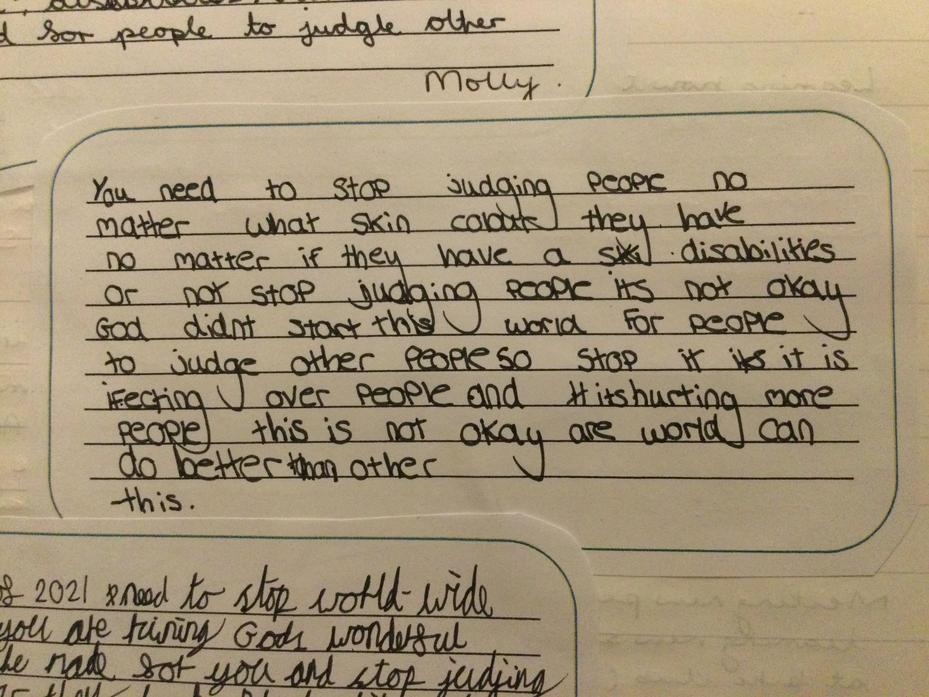 for people to judgle other
Molly.
You need to stop judging people no
matter what skin colour they have
no matter if they have a disabilities
or not stop judging people its not okay
God didnt start this world for people
to judge other people so stop it it is
ifecting over people and itshurting more
people this is not okay are world can
do better than other
this.
of 2021 need to stop world-wide
you are ruining Gods wonderful
he made for you and stop judjing